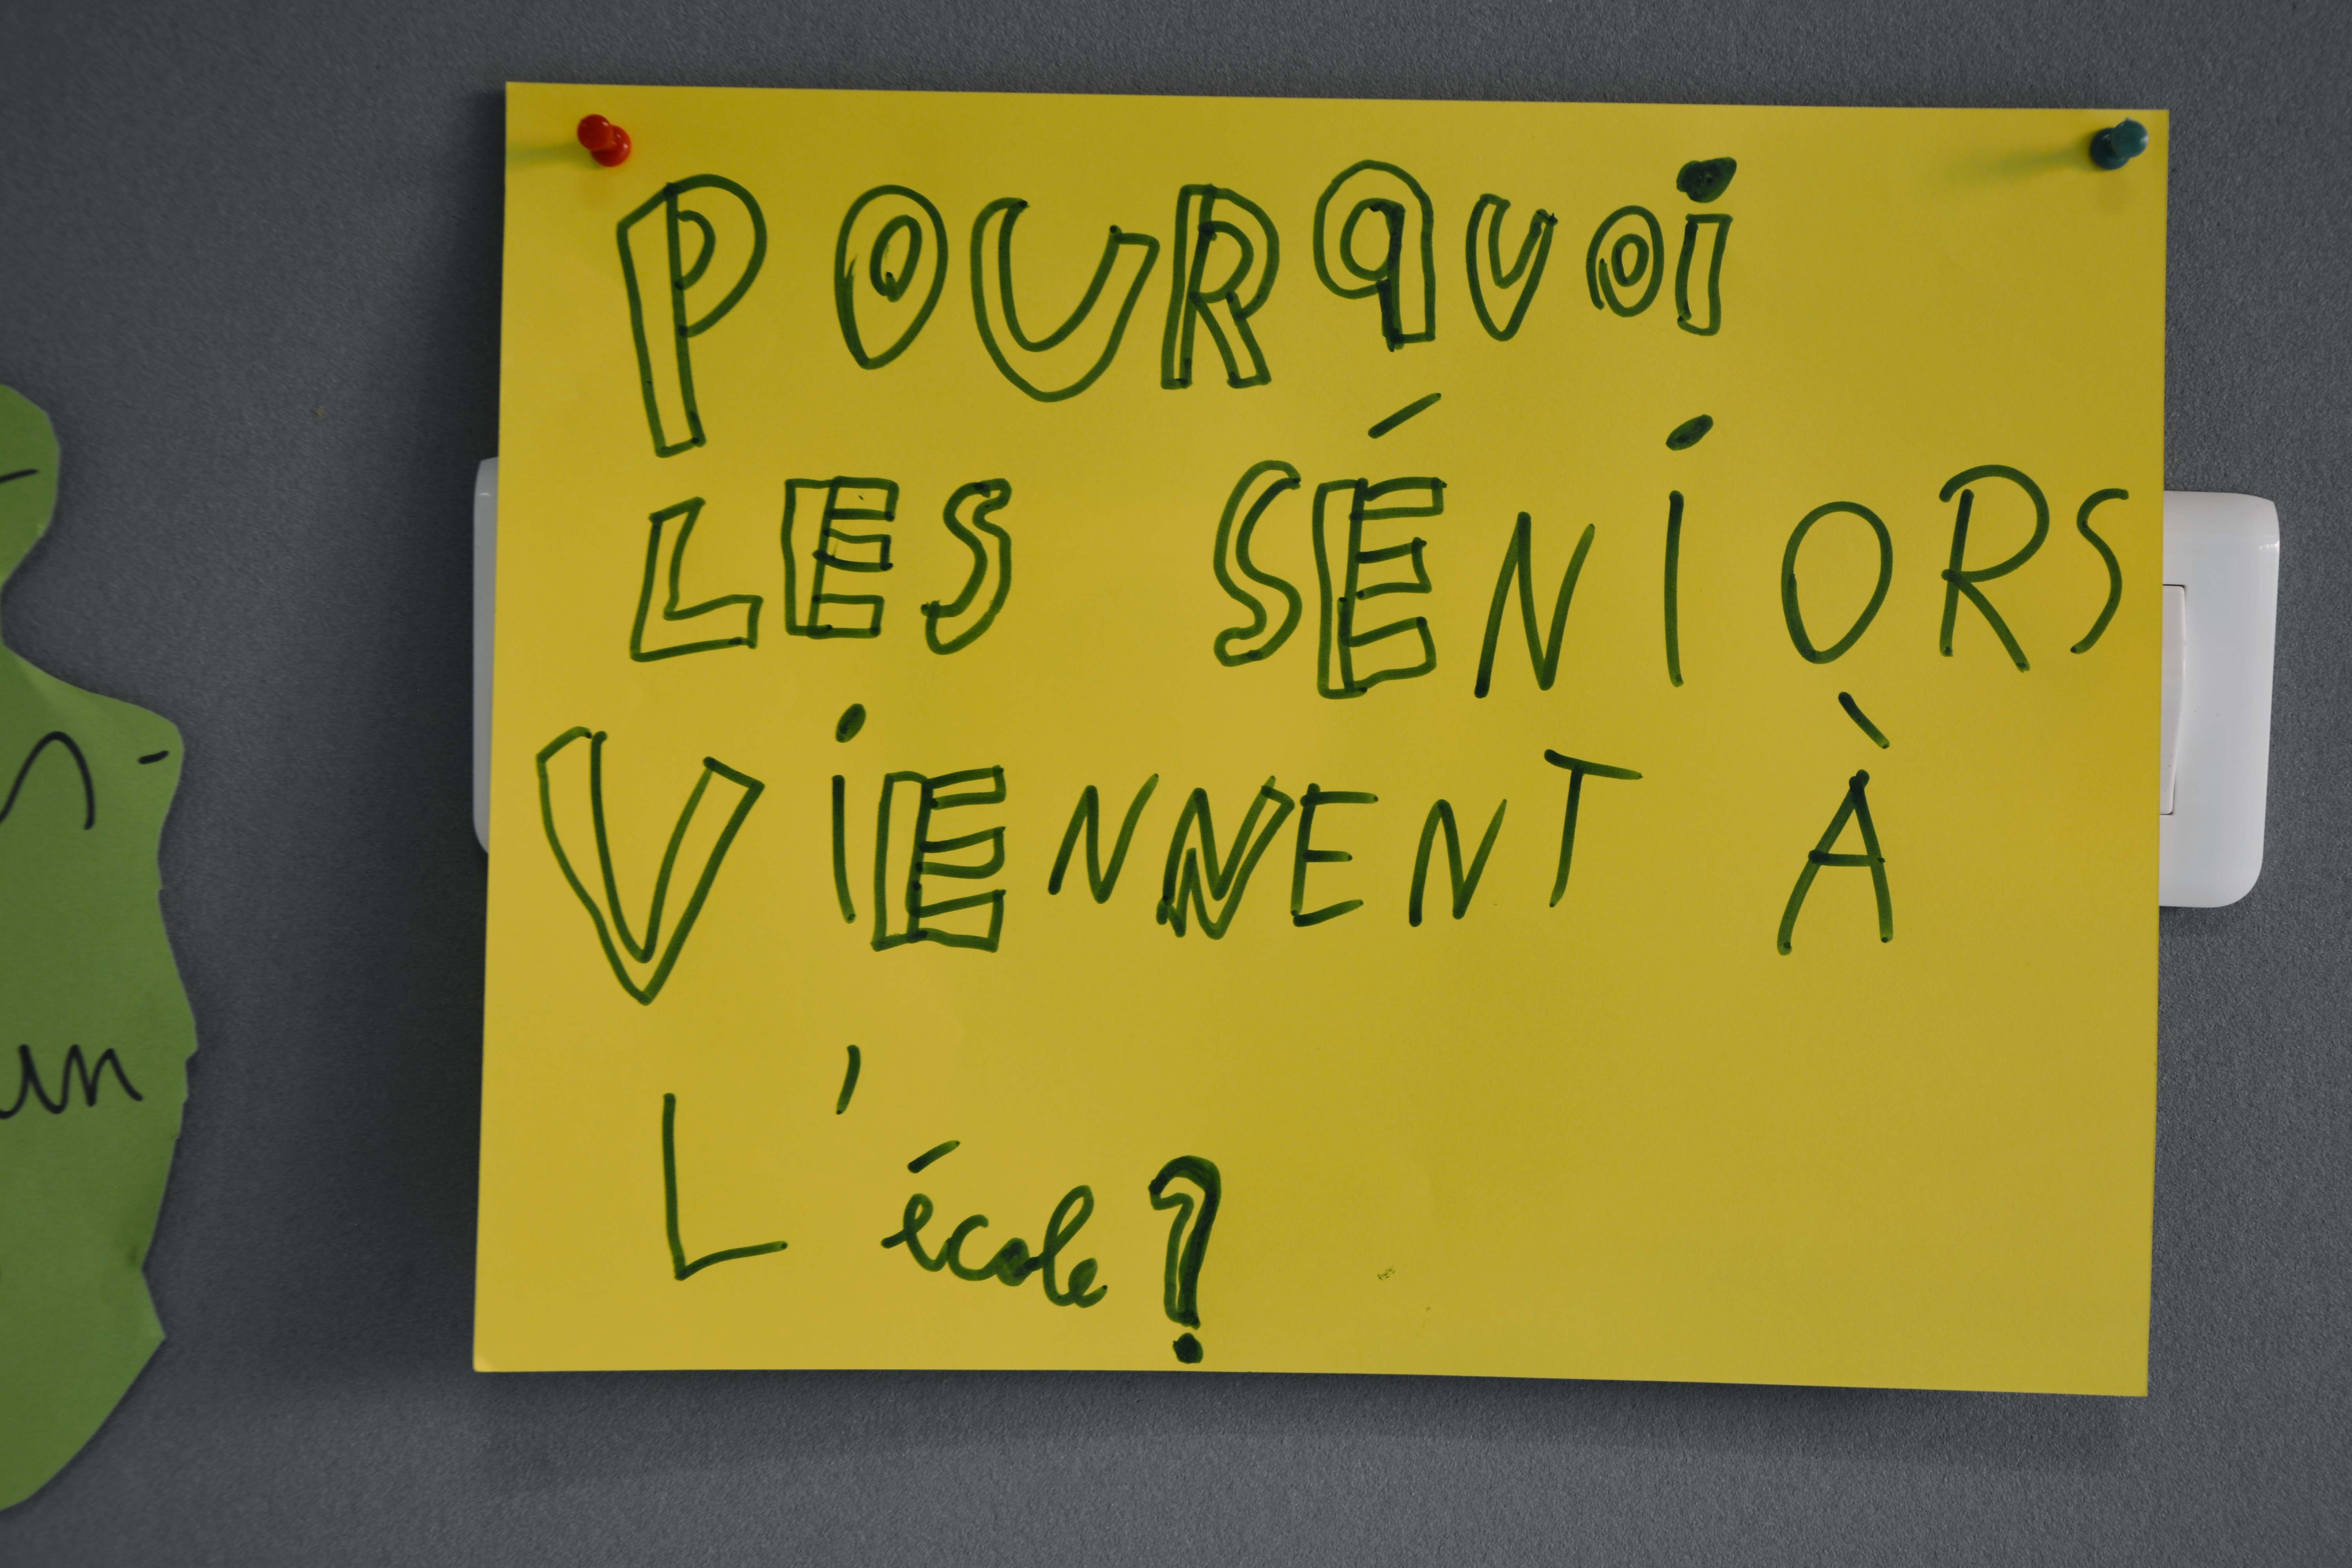 POURQUOi
LES SÉNiORS
ViENNENT À
L'école?
un